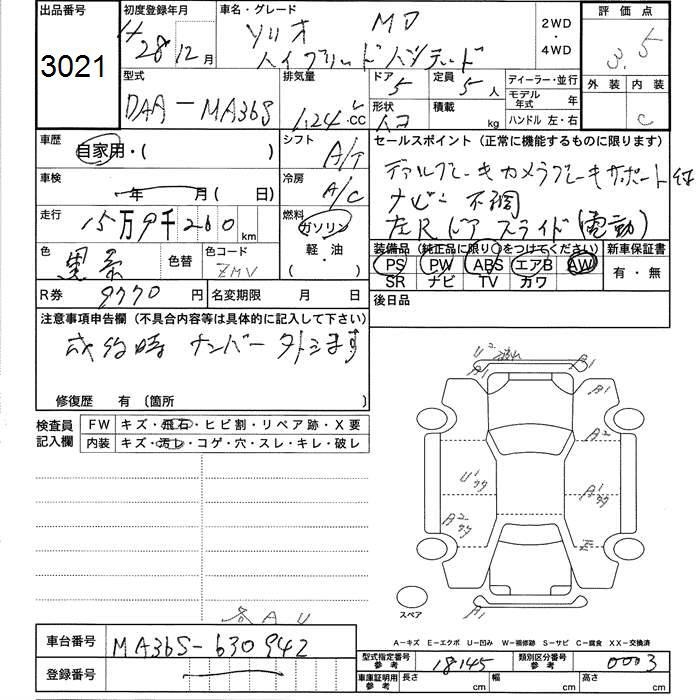 出品番号
3021
初度登録年月
H 28年 12月
車名・グレード
ソリオ MD
ハイブリッド バンディード
2WD
・
4WD
評価点
3.5
外装 内装
C
型式
DAA-MA36S
排気量
1.24 cc
ドア 5
定員 5人
形状
積載 kg
ディーラー・並行
モデル年式 年
ハンドル 左・右
車歴
自家用・( )
シフト
A/T
車検
年 月( 日)
冷房
A/C
走行
15万9千260km
燃料
ガソリン
・
軽油
・
( )
色
黒系
色替
色コード
ZMV
R券 9770円
名変期限 月 日
セールスポイント(正常に機能するものに限ります)
デュアルブレーキカメラブレーキサポート付
ナビー不調
左Rドアスライド(電動)
装備品(純正品に限り○をつけてください)
PS PW ABS エアB AW
SR ナビ TV カワ
新車保証書
有・無
後日品
注意事項申告欄(不具合内容等は具体的に記入して下さい)
成約時 ナンバー外します
修復歴 有 〔箇所 〕
検査員記入欄
FW キズ・飛石・ヒビ割・リペア跡・X要
内装 キズ・汚レ・コゲ・穴・スレ・キレ・破レ
U2
A1
A1
A1
A2
U1
A1
A2
E
A1
スペア
各AU
A-キズ E-エクボ U-凹み W-補修跡 S-サビ C-腐食 XX-交換済
車台番号 MA36S-630942
登録番号
型式指定番号 参考 18145
類別区分番号 参考 0003
車庫証明用 参考 長さ cm 幅 cm 高さ cm